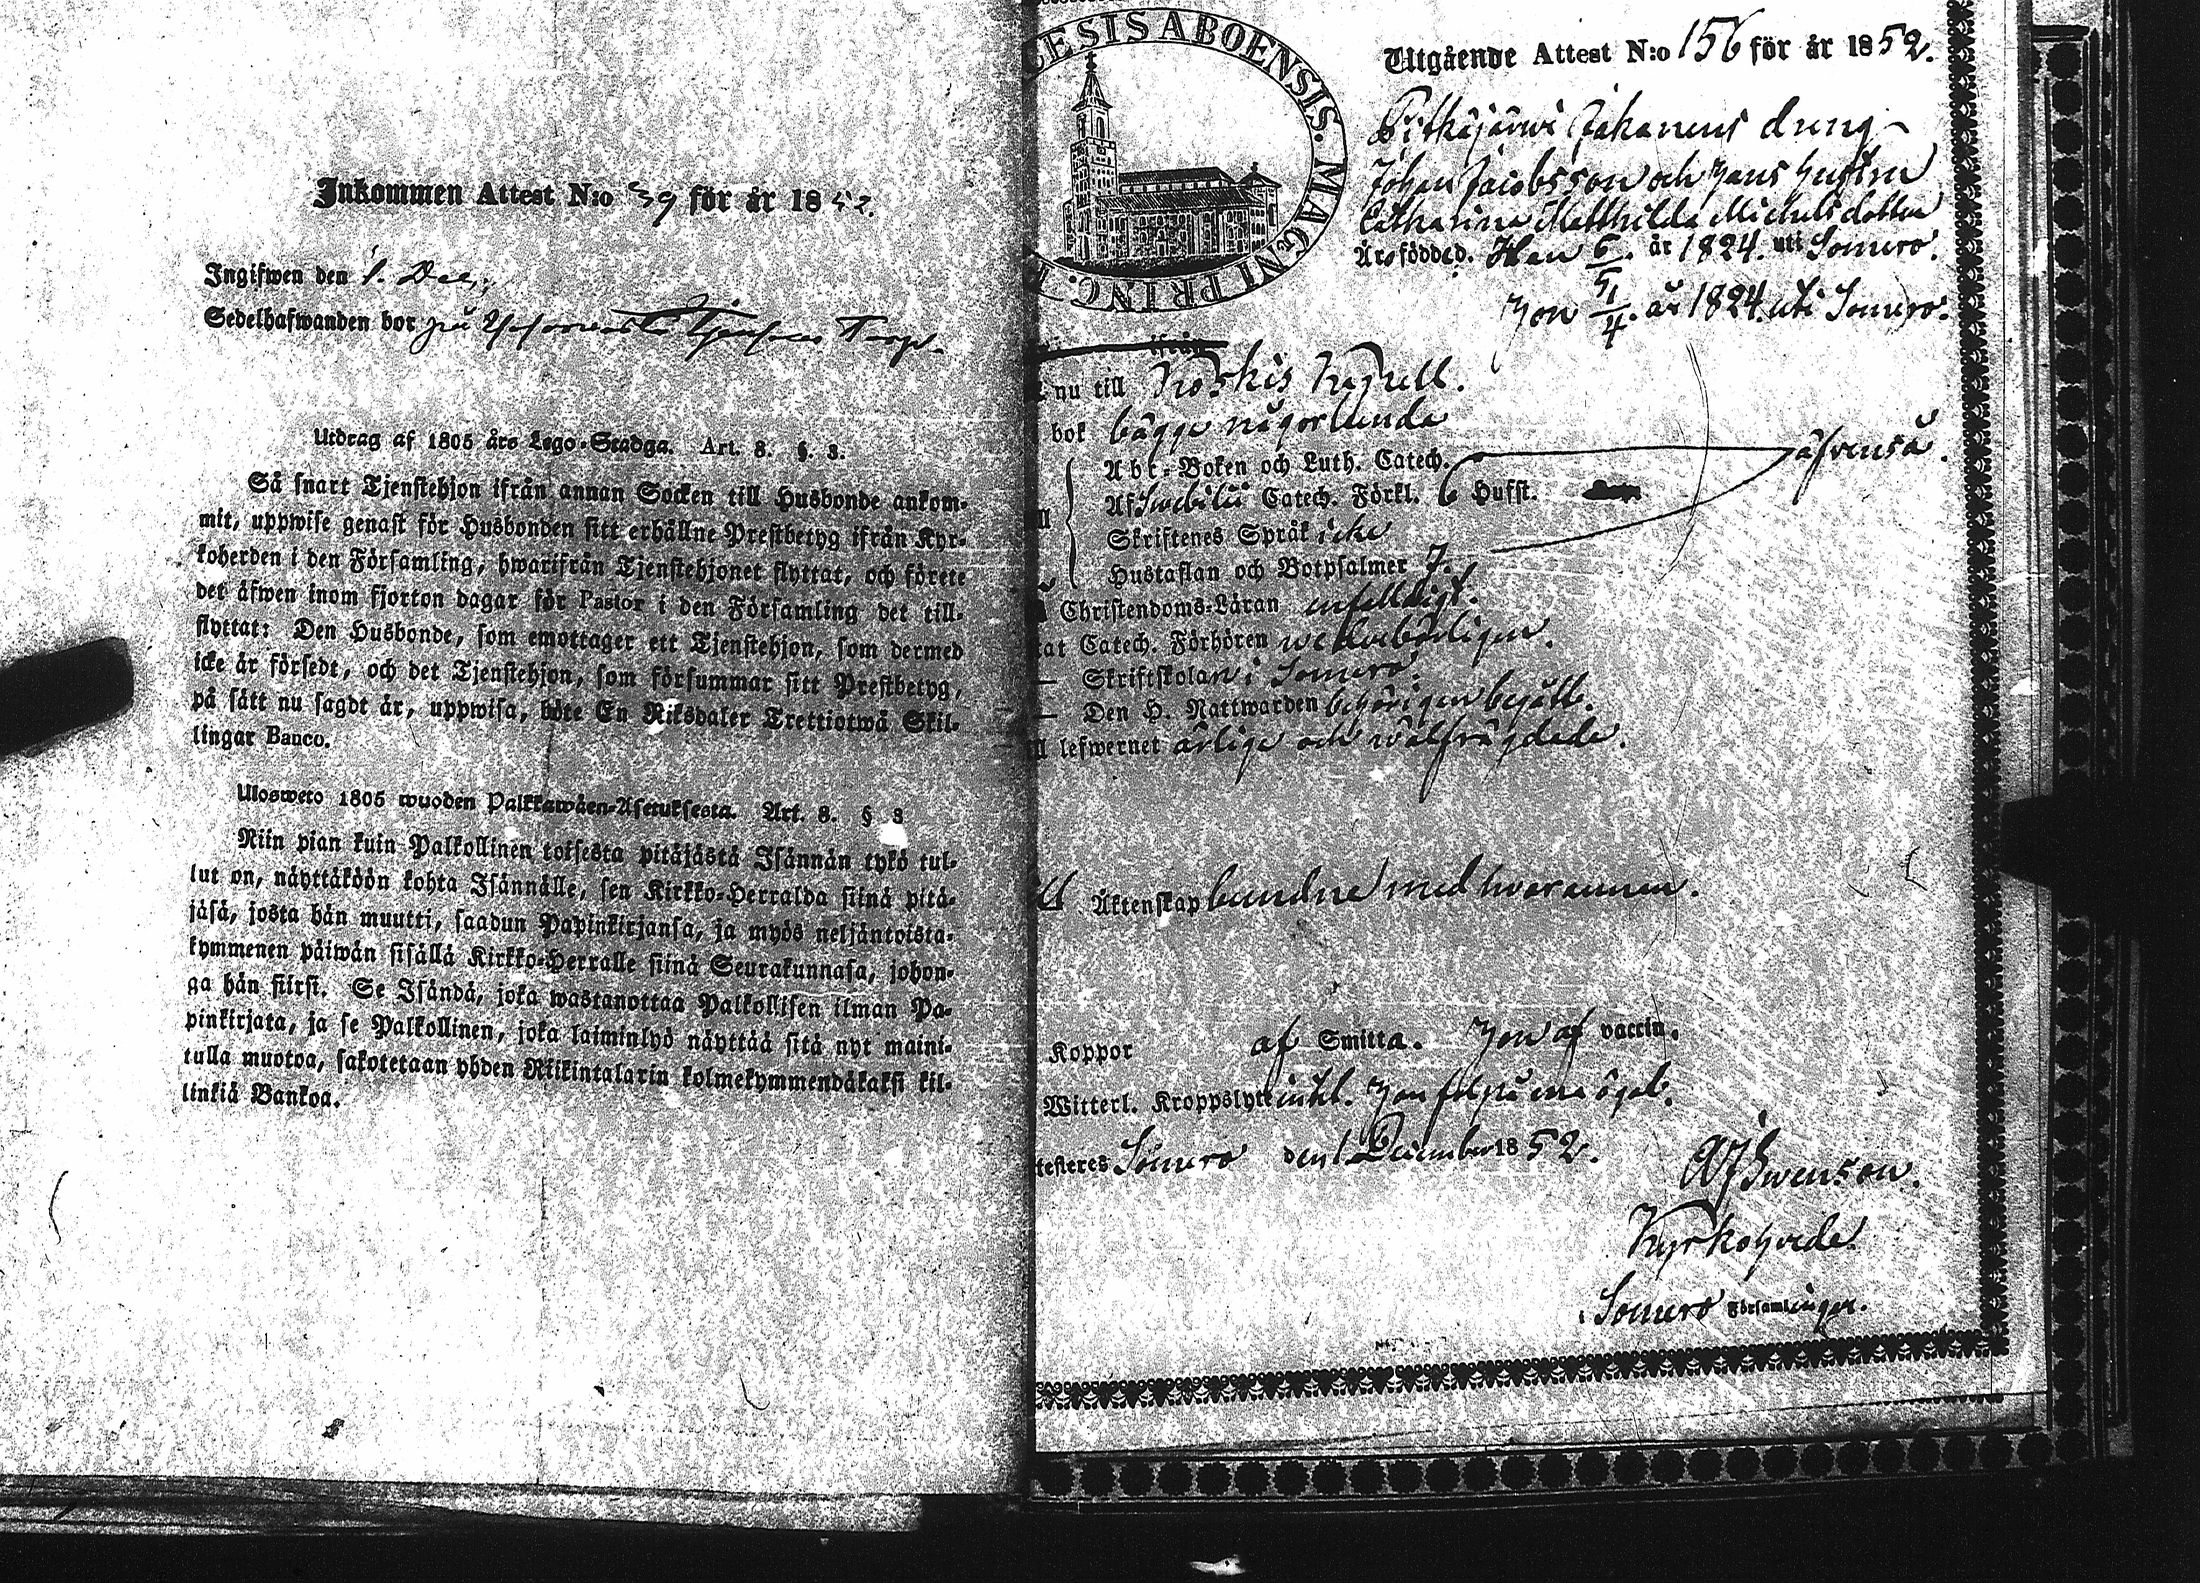 Inkommen Attest N:o 39 för år 1852.
Ingifwen den 1. Dec.
Sedelhafwanden bor på Torp.
Utdrag af 1805 års Lego-Stadga. Art. 8. §. 3.
Så snart Tjenstehjon ifrån annan Socken till Husbonde ankom-
mit, uppwise genast för Husbonden sitt erhållne Prestbetyg ifrån Kyr-
koherden i den Församling, hwarifrån Tjenstehjonet flyttat, och förete
det äfwen inom fjorton dagar för Pastor i den Församling det till-
flyttat: Den Husbonde, som emottager ett Tjenstehjon, som dermed
icke är försedt, och det Tjenstehjon, som försummar sitt Prestbetyg,
på sätt nu sagdt är, uppwisa, böte En Riksdaler Trettiotwå Skil-
lingar Banco.
Ulosweto 1805 wuoden Palkkawäen-Asetuksesta. Art. 8. § 3
Niin pian kuin Palkollinen toisesta pitäjästä Isännän tykö tul-
lut on, näyttäköön kohta Isännälle, sen Kirkko-Herralda siinä pitä-
jäsä, josta hän muutti, saadun Papinkirjansa, ja myös neljäntoista-
kymmenen päiwän sisällä Kirkko-Herralle siinä Seurakunnasa, johon-
ga hän siirsi. Se Isändä, joka wastanottaa Palkollisen ilman Pa-
pinkirjata, ja se Palkollinen, joka laiminlyö näyttää sitä nyt maini-
tulla muotoa, sakotetaan yhden Riikintalarin kolmekymmendäkaksi kil-
linkiä Bankoa.
CESIS ABOENSIS. MAGNI PRINC.
Utgående Attest N:o 156 för år 1852.
Pitkäjärwi Jakanens dreng
Johan Jacobsson och hans hustru
Catharina Mathilda Michelsdotter
Äro födde d. Han 6/5. år 1824. uti Somero.
Hon /4. år 1824. uti Somero.
ifrån
nu till Koskis Kapell.
bok bägge någorlunda
Abc-Boken och Luth. Catech.
Af Swebilii Catech. Förkl. 6 Hufst. äfvenså.
Skriftenes Språk icke
Hustaflan och Botpsalmer 7.
Christendoms-Läran enfaldigt.
tat Catech. Förhören wederbörligen.
— Skriftskolan i Somero.
— Den H. Nattwarden behörigen begått.
ll lefwernet ärlige och wälfrägdade.
Äktenskap bundne med hvarannan.
Koppor af Smitta. Hon af vaccin.
Witterl. Kroppslyte intet. Hon fel på ena ögat.
testeres Somero den 1 December 1852.
A J Swenson.
Kyrkoherde
i Somero Församlingar.